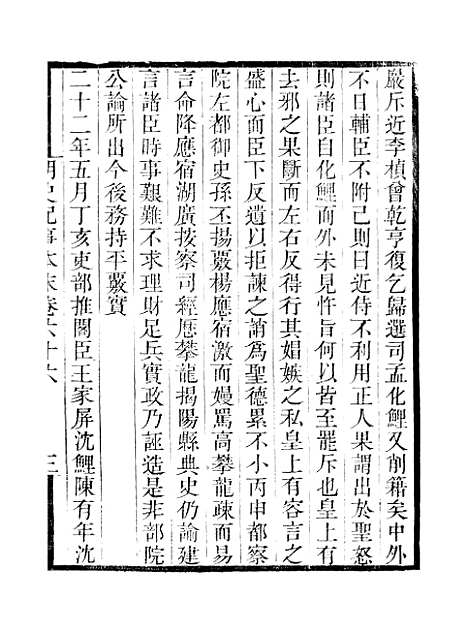 嚴斥近李楨曾乾亨復乞歸選司孟化鯉又削籍矣中外
不日輔臣不附己則日近侍不利用正人果謂出於聖怒
則諸臣自化鯉而外未見忤旨何以皆至罷斥也皇上有
去邪之果斷而左右反得行其媢嫉之私皇上有容言之
盛心而臣下反遺以拒諫之誚爲聖德累不小丙申都察
院左都御史孫丕揚覈楊應宿激而嫚罵高攀龍疎而易
言命降應宿湖廣按察司經歷攀龍揭陽縣典史仍諭建
言諸臣時事艱難不求理財足兵實政乃誣造是非部院
公論所出今後務持平覈實
二十二年五月丁亥吏部推閣臣王家屏沈鯉陳有年沈
明史紀事本末卷六十六 三